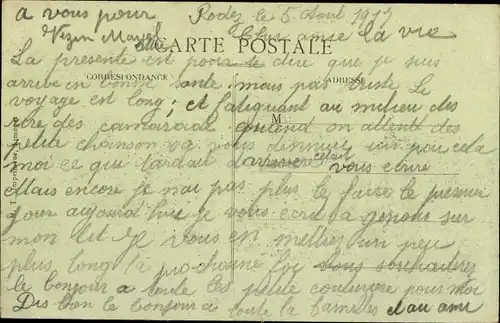 a vous pour
Vezin
Rodez le 5 Aout 1917
Chère amie la vie
CARTE POSTALE
La présente est pour te dire que je suis
CORRESPONDANCE
ADRESSE
arrivé en bonne santé mais pas triste. Le
voyage est long; et fatiguant au milieu des
M
rire des camarade quand on attent des
petite chanson ça vous dennuit un peu cela
moi ce qui tardait darriver cetait
vous ecrire
etais encore je nai pas plus le faire le premier
jour aujourd'hui je vous ecrie a genoux sur
mon lit Je vous en mettrez un peu
plus long la prochaine foi vous souhaiterez
le bonjour a toute les petite couturière pour moi
Dis bien le bonjour a toute la familles et au ami